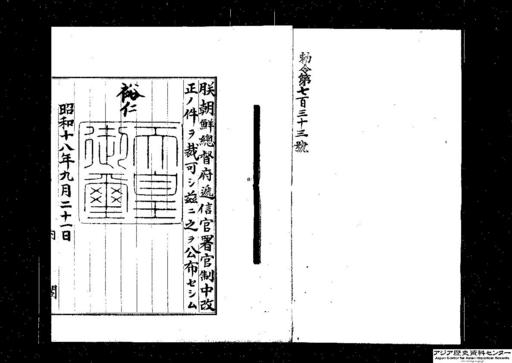 勅令第七百三十三號
朕朝鮮總督府遞信官署官制中改
正ノ件ヲ裁可シ茲ニ之ヲ公布セシム
裕仁
天皇
御璽
昭和十八年九月二十一日
内閣
アジア歴史資料センター
Japan Center for Asian Historical Records